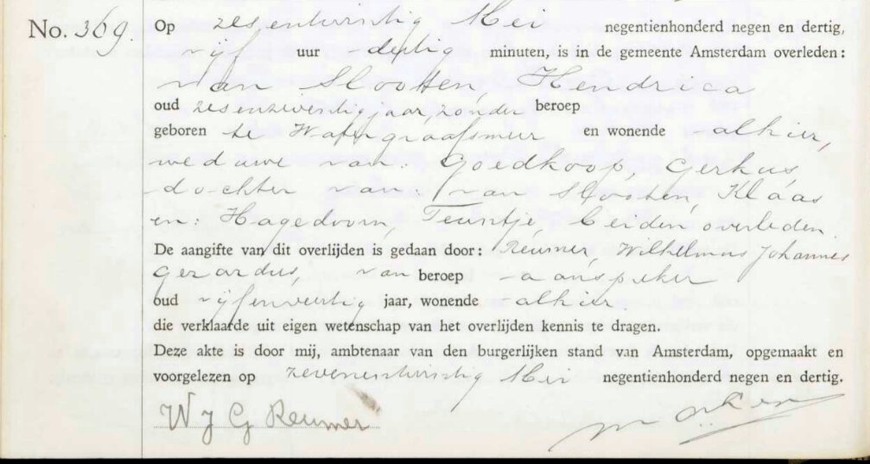 No. 369.
Op zesentwintig Mei negentienhonderd negen en dertig,
vijf uur dertig minuten, is in de gemeente Amsterdam overleden:
van Slooten, Hendrica
oud zesenzeventig jaar, zonder beroep
geboren te Watergraafsmeer en wonende alhier,
weduwe van: Goedkoop, Gerkus
dochter van: van Slooten, Klaas
en: Hagedoorn, Teuntje, beiden overleden.
De aangifte van dit overlijden is gedaan door: Reumer, Wilhelmus Johannes
Gerardus, van beroep aanspreker
oud vijfenveertig jaar, wonende alhier
die verklaarde uit eigen wetenschap van het overlijden kennis te dragen.
Deze akte is door mij, ambtenaar van den burgerlijken stand van Amsterdam, opgemaakt en
voorgelezen op zevenentwintig Mei negentienhonderd negen en dertig.
W J G Reumer